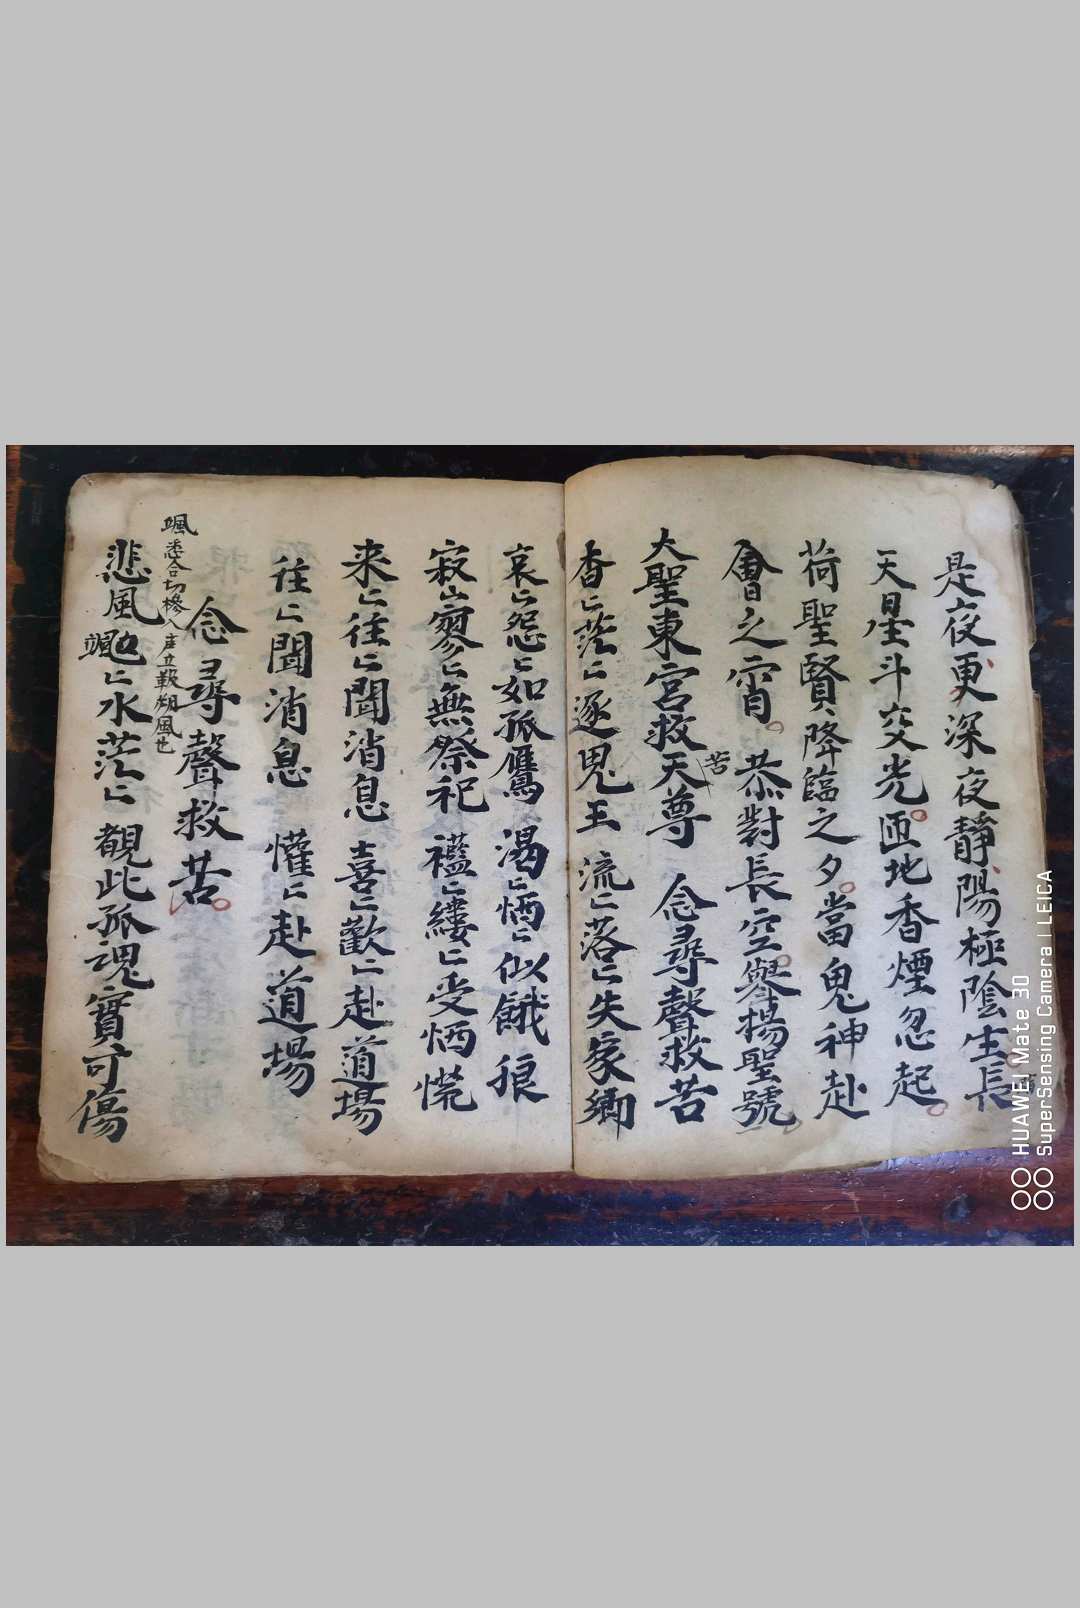 是夜更深夜靜陽極陰生長
天星斗交光匝地香煙忽起
荷聖賢降臨之夕當鬼神赴
會之宵恭對長空舉揚聖號
大聖東宮救苦天尊 念尋聲救苦
香〻茫〻逐鬼王 流〻落〻失家鄉
哀〻怨〻如孤鴈 渴〻㤱〻似餓狼
寂〻寥〻無祭祀 襤〻縷〻受恓慌
来〻往〻聞消息 喜〻歡〻赴道場
往〻聞消息 懽〻赴道場
念尋聲救苦
颯悉合切
朔風也
悲風颯〻水茫〻 觀此孤魂實可傷
HUAWEI Mate 30
SuperSensing Camera | LEICA